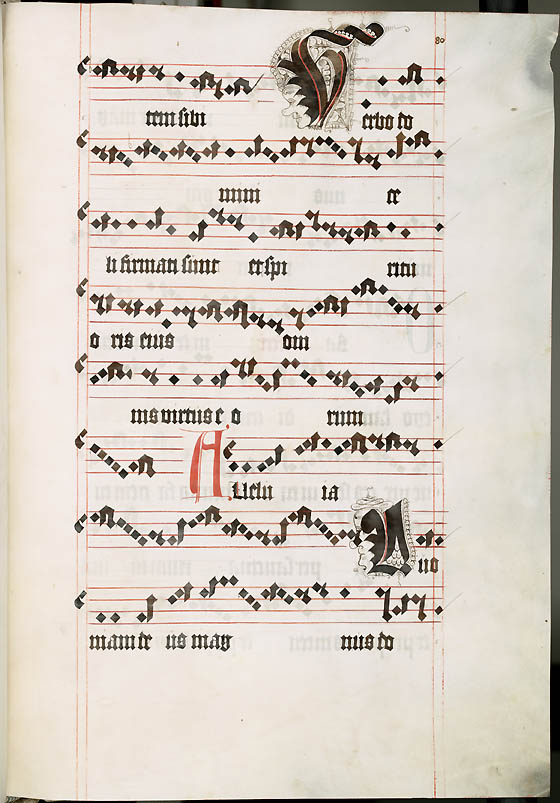 80
rem sibi Verbo do
mini ce
li firmati sunt et spi ritu
o ris eius om
nis virtus e o rum
Allelu ia Quo
niam de us mag nus do